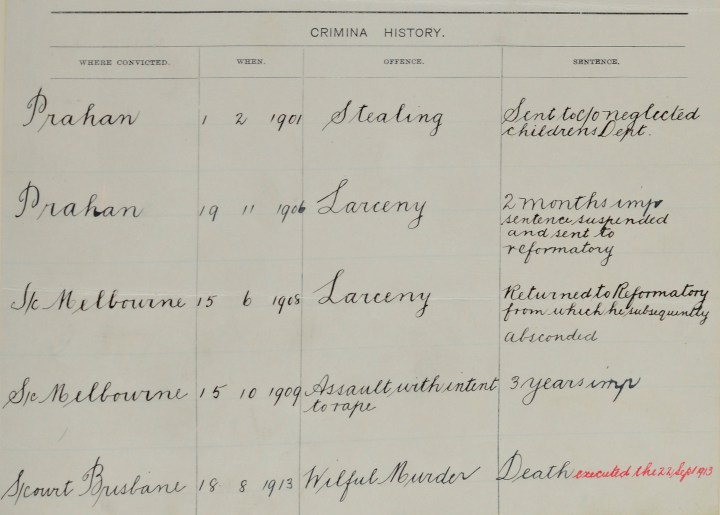 CRIMINA HISTORY.
WHERE CONVICTED. WHEN. OFFENCE. SENTENCE.
Prahan 1 2 1901 Stealing Sent to c/o neglected
childrens Dept.
Prahan 19 11 1906 Larceny 2 months imp
sentence suspended
and sent to
reformatory
S/c Melbourne 15 6 1908 Larceny Returned to Reformatory
from which he subsequently
absconded
S/c Melbourne 15 10 1909 Assault with intent 3 years imp
to rape
S/court Brisbane 18 8 1913 Wilful Murder Death executed the 22 Sept 1913